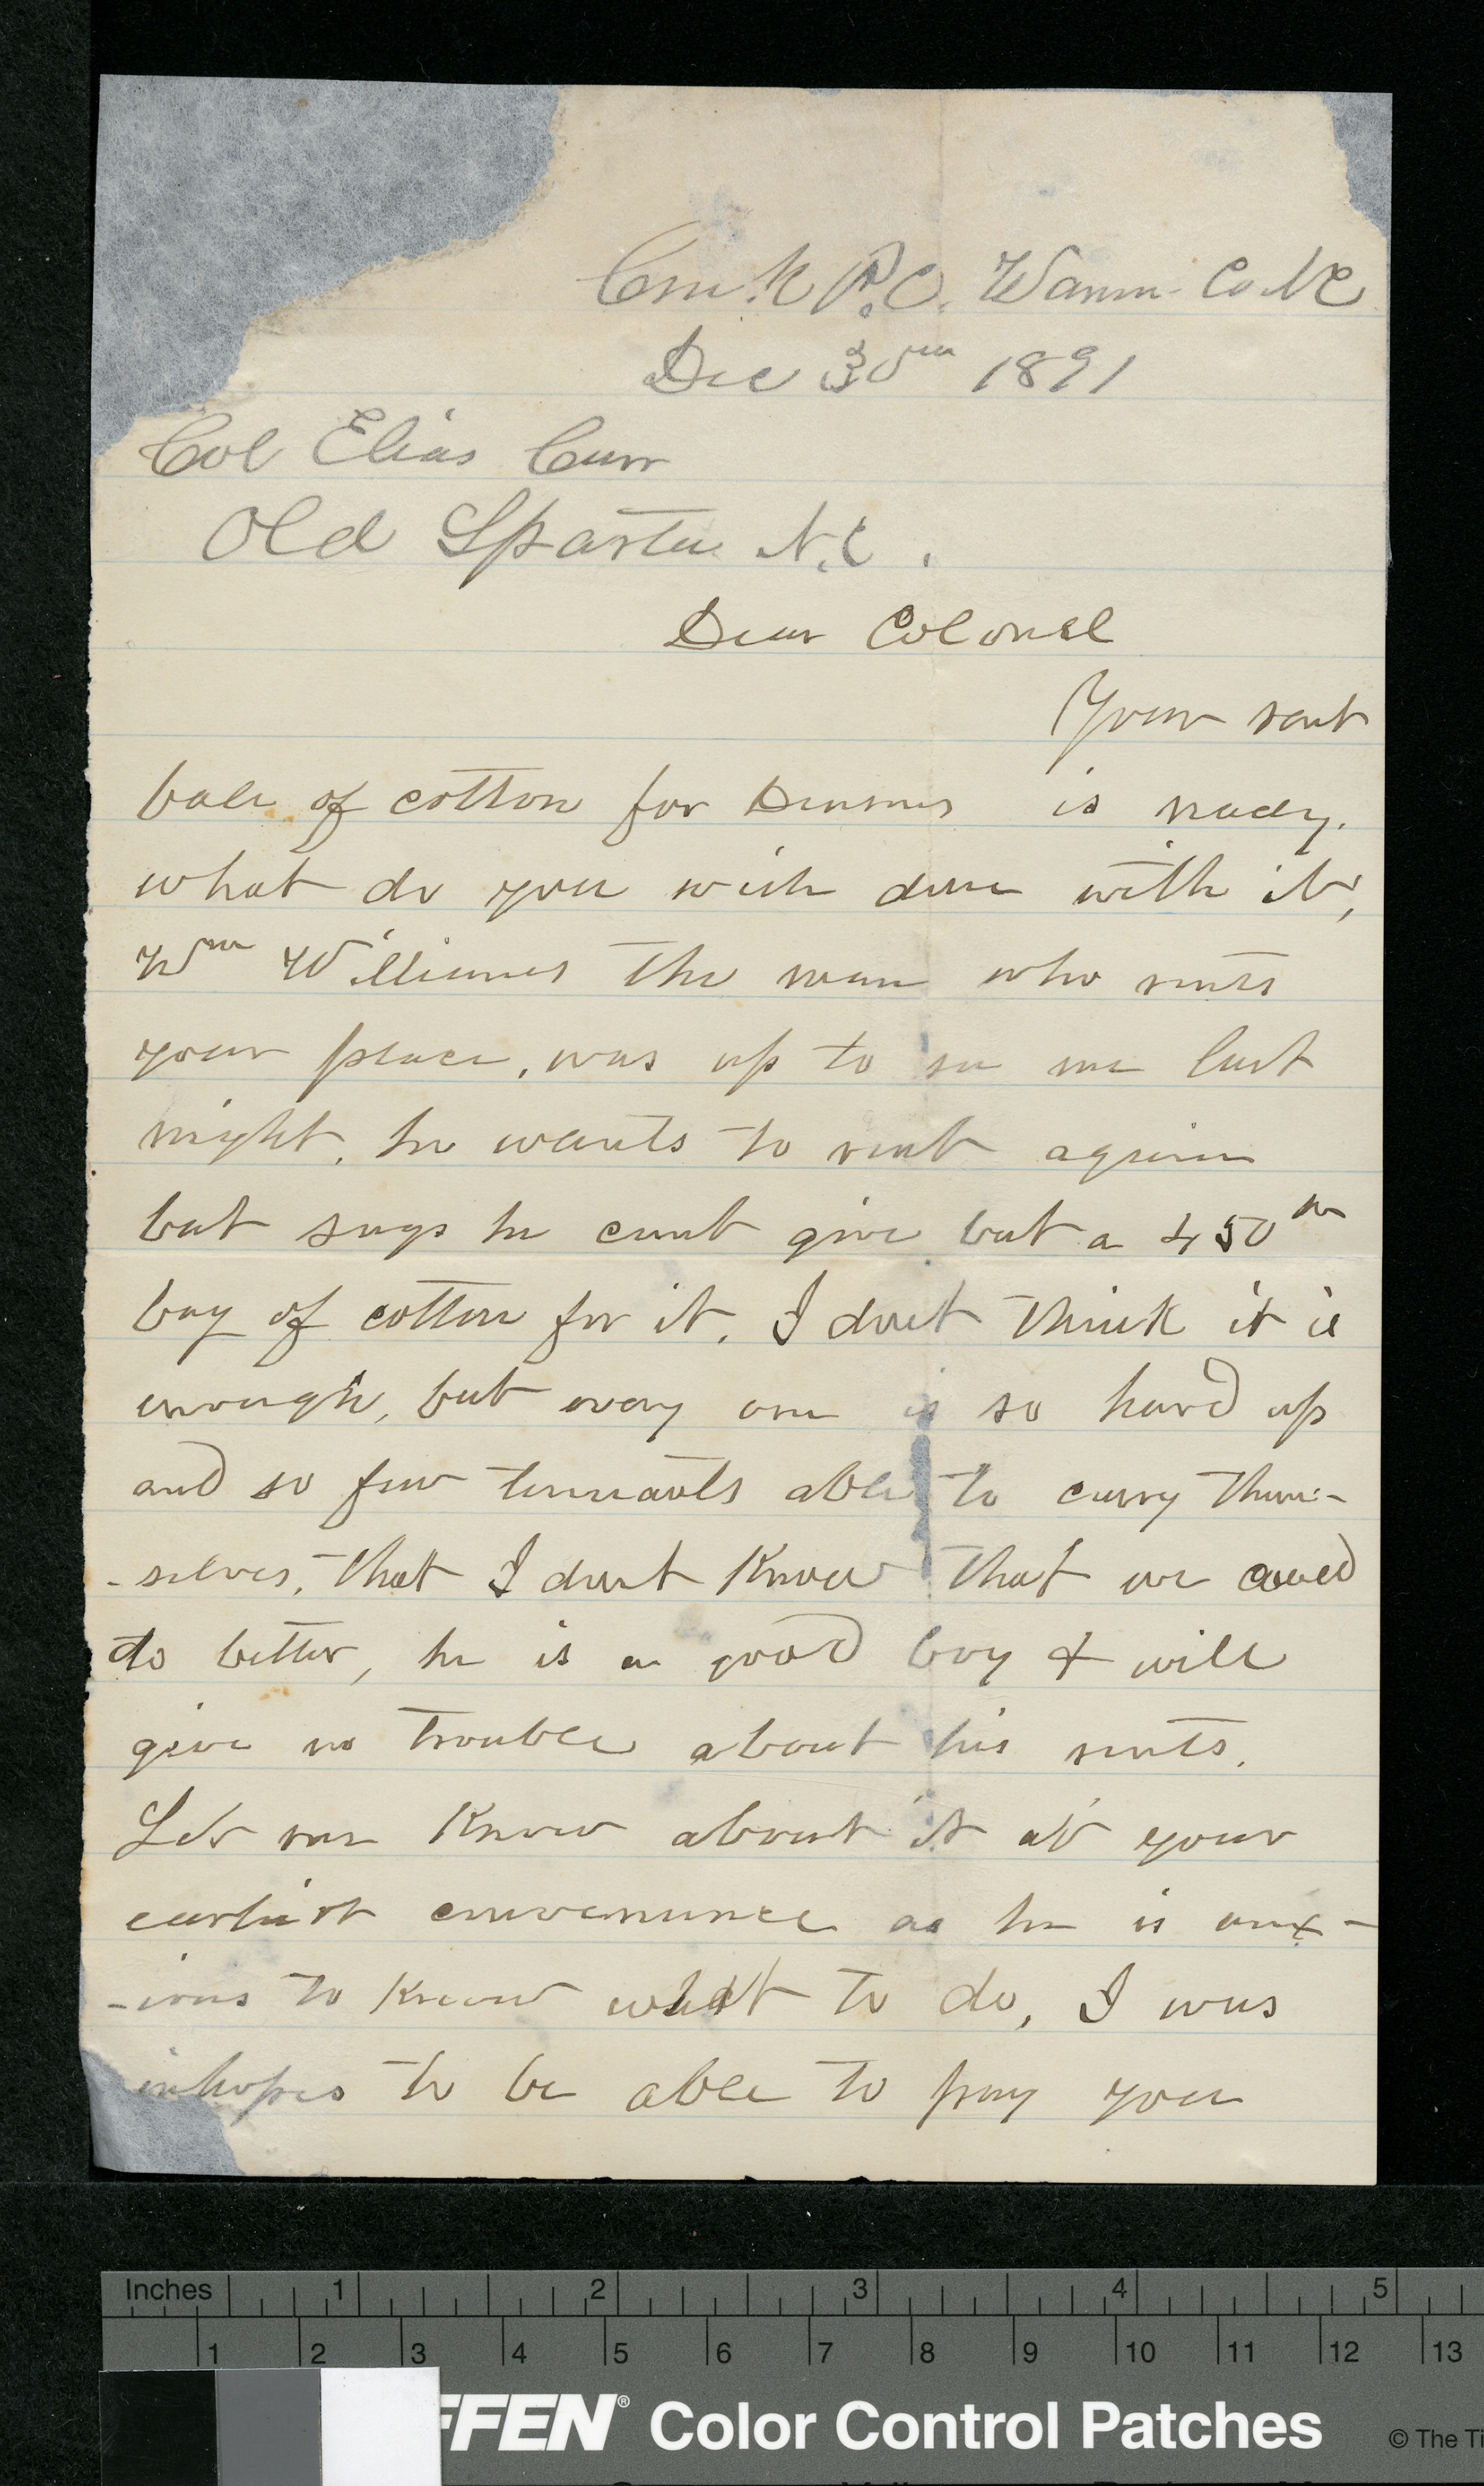 P.O. Warren Co NC
Dec 30th 1891
Col Elias Carr
Old Sparta N.C.
Dear Colonel
Your rent
bale of cotton for is ready.
what do you wish done with it,
Wm Williams the man who rents
your place, was up to see me last
night, he wants to rent again
but says he cant give but a 450
bag of cotton for it. I dont think it is
enough, but every one is so hard up
and so few tennants able to carry them-
-selves, that I dont know that we could
do better, he is a good boy & will
give no trouble about his rents.
Let me know about it at your
earliest convenience as he is anx-
-ious to know what to do, I was
inhopes to be able to pay you
Inches 1 2 3 4 5
1 2 3 4 5 6 7 8 9 10 11 12 13
FFEN® Color Control Patches © The Ti